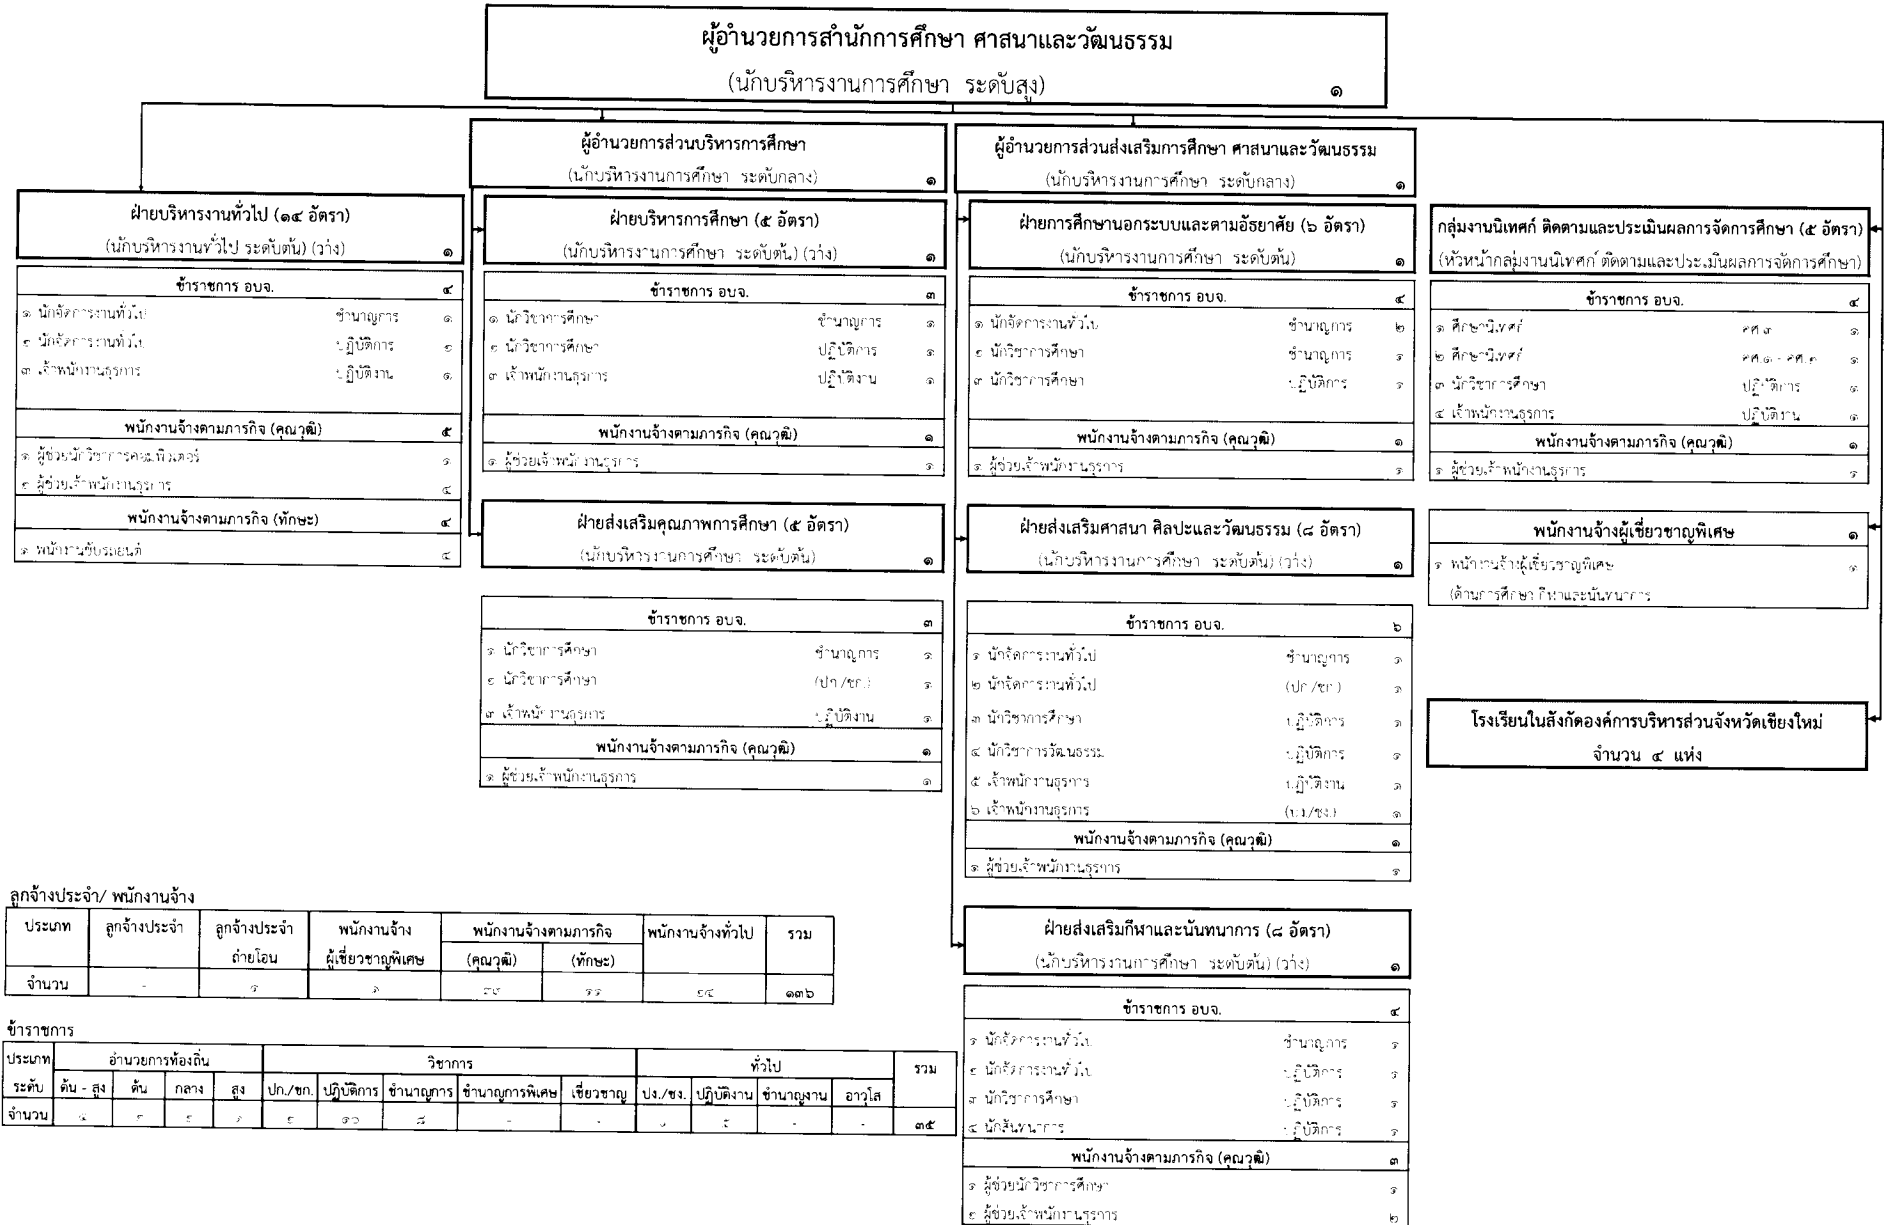 ผู้อำนวยการสำนักการศึกษา ศาสนาและวัฒนธรรม
(นักบริหารงานการศึกษา ระดับสูง) ๑
ผู้อำนวยการส่วนบริหารการศึกษา
(นักบริหารงานการศึกษา ระดับกลาง) ๑
ผู้อำนวยการส่วนส่งเสริมการศึกษา ศาสนาและวัฒนธรรม
(นักบริหารงานการศึกษา ระดับกลาง) ๑
ฝ่ายบริหารงานทั่วไป (๑๔ อัตรา)
(นักบริหารงานทั่วไป ระดับต้น) (ว่าง) ๑
ข้าราชการ อบจ. ๔
๑ นักจัดการงานทั่วไป ชำนาญการ ๑
๒ นักจัดการงานทั่วไป ปฏิบัติการ ๒
๓ เจ้าพนักงานธุรการ ปฏิบัติงาน ๑
พนักงานจ้างตามภารกิจ (คุณวุฒิ) ๕
๑ ผู้ช่วยนักวิชาการคอมพิวเตอร์ ๑
๒ ผู้ช่วยเจ้าพนักงานธุรการ ๔
พนักงานจ้างตามภารกิจ (ทักษะ) ๔
๑ พนักงานขับรถยนต์ ๔
ฝ่ายบริหารการศึกษา (๕ อัตรา)
(นักบริหารงานการศึกษา ระดับต้น) (ว่าง) ๑
ข้าราชการ อบจ. ๓
๑ นักวิชาการศึกษา ชำนาญการ ๑
๒ นักวิชาการศึกษา ปฏิบัติการ ๑
๓ เจ้าพนักงานธุรการ ปฏิบัติงาน ๑
พนักงานจ้างตามภารกิจ (คุณวุฒิ) ๑
๑ ผู้ช่วยเจ้าพนักงานธุรการ ๑
ฝ่ายส่งเสริมคุณภาพการศึกษา (๕ อัตรา)
(นักบริหารงานการศึกษา ระดับต้น) ๑
ข้าราชการ อบจ. ๓
๑ นักวิชาการศึกษา ชำนาญการ ๑
๒ นักวิชาการศึกษา (ปก./ชก.) ๑
๓ เจ้าพนักงานธุรการ ปฏิบัติงาน ๑
พนักงานจ้างตามภารกิจ (คุณวุฒิ) ๑
๑ ผู้ช่วยเจ้าพนักงานธุรการ ๑
ฝ่ายการศึกษานอกระบบและตามอัธยาศัย (๖ อัตรา)
(นักบริหารงานการศึกษา ระดับต้น) ๑
ข้าราชการ อบจ. ๔
๑ นักจัดการงานทั่วไป ชำนาญการ ๒
๒ นักวิชาการศึกษา ชำนาญการ ๑
๓ นักวิชาการศึกษา ปฏิบัติการ ๑
พนักงานจ้างตามภารกิจ (คุณวุฒิ) ๑
๑ ผู้ช่วยเจ้าพนักงานธุรการ ๑
ฝ่ายส่งเสริมศาสนา ศิลปะและวัฒนธรรม (๘ อัตรา)
(นักบริหารงานการศึกษา ระดับต้น) (ว่าง) ๑
ข้าราชการ อบจ. ๖
๑ นักจัดการงานทั่วไป ชำนาญการ ๑
๒ นักจัดการงานทั่วไป (ปก./ชก.) ๑
๓ นักวิชาการศึกษา ปฏิบัติการ ๑
๔ นักวิชาการวัฒนธรรม ปฏิบัติการ ๑
๕ เจ้าพนักงานธุรการ ปฏิบัติงาน ๑
๖ เจ้าพนักงานธุรการ (ปง./ชง.) ๑
พนักงานจ้างตามภารกิจ (คุณวุฒิ) ๑
๑ ผู้ช่วยเจ้าพนักงานธุรการ ๑
ฝ่ายส่งเสริมกีฬาและนันทนาการ (๘ อัตรา)
(นักบริหารงานการศึกษา ระดับต้น) (ว่าง) ๑
ข้าราชการ อบจ. ๔
๑ นักจัดการงานทั่วไป ชำนาญการ ๑
๒ นักจัดการงานทั่วไป ปฏิบัติการ ๑
๓ นักวิชาการศึกษา ปฏิบัติการ ๑
๔ นักสันทนาการ ปฏิบัติการ ๑
พนักงานจ้างตามภารกิจ (คุณวุฒิ) ๓
๑ ผู้ช่วยนักวิชาการศึกษา ๑
๒ ผู้ช่วยเจ้าพนักงานธุรการ ๒
กลุ่มงานนิเทศก์ ติดตามและประเมินผลการจัดการศึกษา (๕ อัตรา)
(หัวหน้ากลุ่มงานนิเทศก์ ติดตามและประเมินผลการจัดการศึกษา)
ข้าราชการ อบจ. ๔
๑ ศึกษานิเทศก์ คศ.๓ ๑
๒ ศึกษานิเทศก์ ๑
๓ นักวิชาการศึกษา ปฏิบัติการ ๑
๔ เจ้าพนักงานธุรการ ปฏิบัติงาน ๑
พนักงานจ้างตามภารกิจ (คุณวุฒิ) ๑
๑ ผู้ช่วยเจ้าพนักงานธุรการ ๑
พนักงานจ้างผู้เชี่ยวชาญพิเศษ ๑
๑ พนักงานจ้างผู้เชี่ยวชาญพิเศษ ๑
(ด้านการศึกษา กีฬาและนันทนาการ
โรงเรียนในสังกัดองค์การบริหารส่วนจังหวัดเชียงใหม่
จำนวน ๔ แห่ง
ลูกจ้างประจำ/ พนักงานจ้าง
ประเภท ลูกจ้างประจำ ลูกจ้างประจำ พนักงานจ้าง พนักงานจ้างตามภารกิจ พนักงานจ้างทั่วไป รวม
ถ่ายโอน ผู้เชี่ยวชาญพิเศษ (คุณวุฒิ) (ทักษะ)
จำนวน - ๑ ๑ ๑๓๖
ข้าราชการ
ประเภท อำนวยการท้องถิ่น วิชาการ ทั่วไป รวม
ระดับ ต้น - สูง ต้น กลาง สูง ปก./ชก. ปฏิบัติการ ชำนาญการ ชำนาญการพิเศษ เชี่ยวชาญ ปง./ชง. ปฏิบัติงาน ชำนาญงาน อาวุโส
จำนวน ๒ ๑ ๒ ๘ - - - - ๓๕